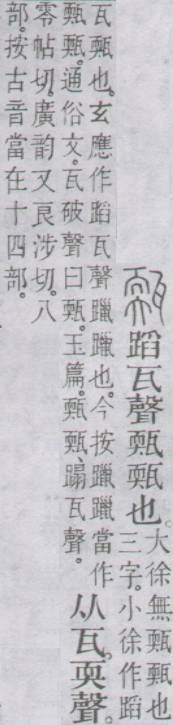 蹈瓦聲㼲㼲也。
大徐無㼲㼲也
三字。小徐作蹈
瓦㼲也。玄應作蹈瓦聲躐躐也。今按躐躐當作
㼲㼲。通俗文。瓦破聲曰㼲。玉篇。㼲㼲、蹋瓦聲。
从瓦。耎聲。
零帖切。廣韵又良涉切。八
部。按古音當在十四部。